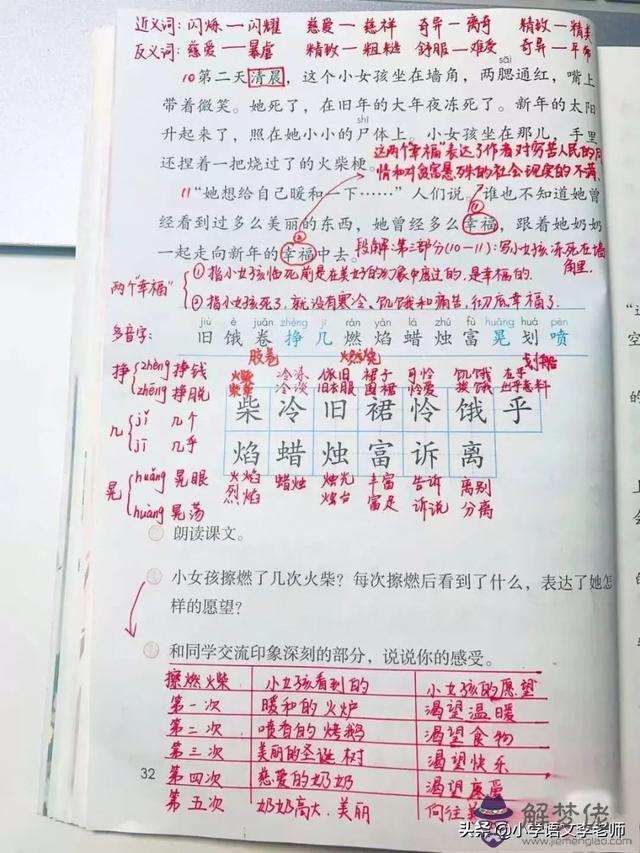 近义词：闪烁—闪耀 慈爱—慈祥 奇异—离奇 精致—精美
反义词：慈爱—暴虐 精致—粗糙 舒服—难受 奇异—平
sāi
10第二天清晨，这个小女孩坐在墙角，两腮通红，嘴上
带着微笑。她死了，在旧年的大年夜冻死了。新年的太阳
shī
升起来了，照在她小小的尸体上。小女孩坐在那儿，手里
还捏着一把烧过了的火柴梗。
这两个“幸福”表达了作者对穷苦人民的同
情和对贫富悬殊的社会现实的不满
11“她想给自己暖和一下……”人们说。谁也不知道她曾
经看到过多么美丽的东西，她曾经多么幸福，跟着她奶奶
一起走向新年的幸福中去。
段解：第三部分(10-11)：写小女孩冻死在墙
角里.
两个“幸福”
①指小女孩临死前是在美好的幻象中度过的,是幸福的.
②指小女孩死了,就没有寒冷、饥饿和痛苦,彻底幸福了.
jiù è juǎn zhèng jǐ rán yàn là zhú fù huàng huá pèn
多音字：
旧饿卷挣几燃焰蜡烛富晃划喷
胶卷 燃烧 划船
挣 zhèng 挣钱
zhēng 挣脱
火柴 冷冻 依旧 裙子 可怜 饥饿 在乎
柴草 冷淡 旧衣服 围裙 怜爱 挨饿 出乎意料
柴冷旧裙怜饿乎
几 jǐ 几个
jī 几乎
焰蜡烛富诉离
晃 huǎng 晃眼
huàng 晃荡
火焰 蜡烛 烛光 丰富 告诉 离别
烈焰 烛台 富足 诉说 分离
朗读课文。
小女孩擦燃了几次火柴？每次擦燃后看到了什么，表达了她怎
样的愿望？
和同学交流印象深刻的部分，说说你的感受。
擦燃火柴 小女孩看到的 小女孩的愿望
第一次 暖和的火炉 渴望温暖
第二次 喷香的烤鹅 渴望食物
第三次 美丽的圣诞树 渴望快乐
第四次 慈爱的奶奶 渴望疼爱
第五次 奶奶高大、美丽 向往
32
解梦佬
www.jiemenglao.com
头条@小学语文李老师